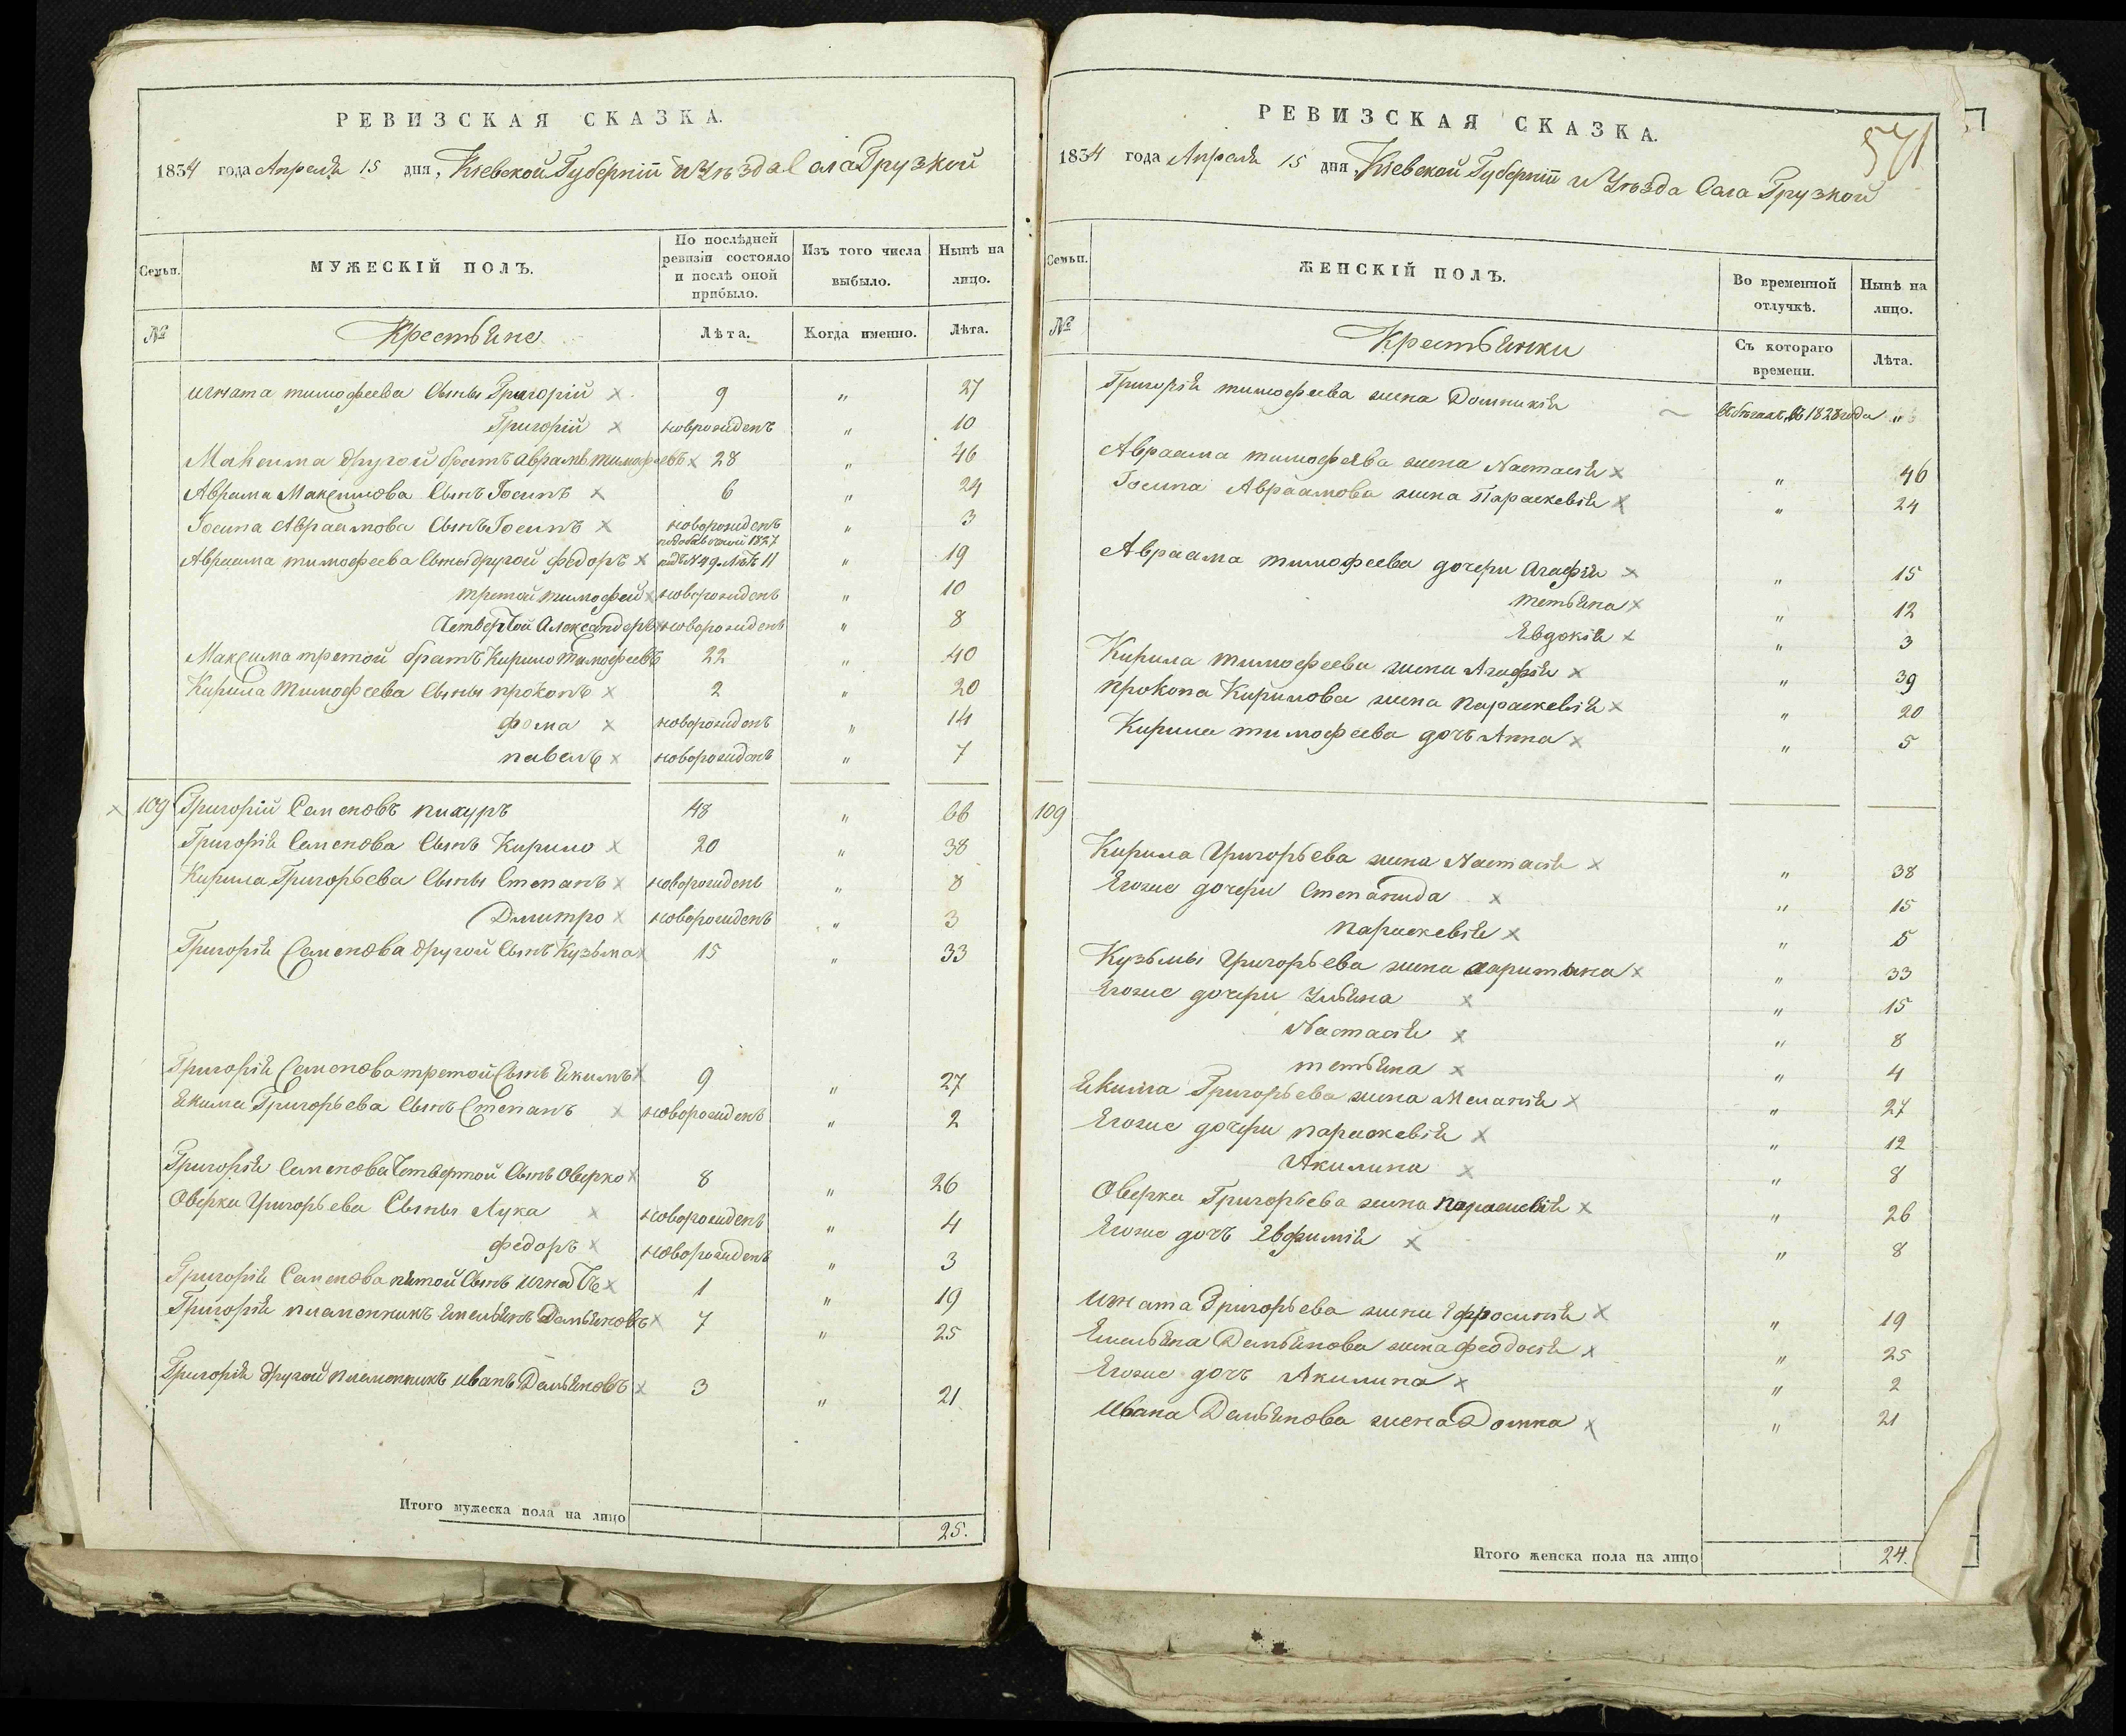 РЕВИЗСКАЯ СКАЗКА.
1834 года Апреля 15 дня, Кіевской Губерніи и Уѣзда Села Грузкой
Семьи.
МУЖЕСКІЙ ПОЛЪ.
По послѣдней ревизіи состояло и послѣ оной прибыло.
Изъ того числа выбыло.
Нынѣ на лицо.
№
Крестьяне
Лѣта.
Когда именно.
Лѣта.
Игната тимофеева Сыны Григорій х 9 " 27
Григорій х новорожденъ " 10
Максима другой братъ Аврамъ тимофеевъ х 28 " 46
Аврама Максимова Сынъ Іосипъ х 6 " 24
Іосипа Авраамова Сынъ Іосипъ х новорожденъ " 3
Авраама тимофеева Сыны другой федоръ х 1827 подъ № 49 Лѣтъ 11 " 19
третой тимофей х новорожденъ " 10
Четвертой Александеръ х новорожденъ " 8
Максима третой братъ Кирило Тимофеевъ 22 " 40
Кирила Тимофеева Сыны прокопъ х 2 " 20
фома х новорожденъ " 14
павелъ х новорожденъ " 7
х 109 Григорій Семеновъ 48 " 66
Григорія Семенова Сынъ Кирило х 20 " 38
Кирила Григорьева Сыны Степанъ х новорожденъ " 8
Дмитро х новорожденъ " 3
Григорія Семенова другой Сынъ Кузьма х 15 " 33
Григорія Семенова третой Сынъ Якимъ х 9 " 27
Якима Григорьева Сынъ Степанъ х новорожденъ " 2
Григорія Семенова Четвертой Сынъ Оверко х 8 " 26
Оверка Григорьева Сыны Лука х новорожденъ " 4
федоръ х новорожденъ " 3
Григорія Семенова пятой Сынъ игнатъ х 1 " 19
Григорія племенникъ Емельянъ Демьяновъ х 7 " 25
Григорія другой племенникъ иванъ Демьяновъ х 3 " 21
Итого мужеска пола на лицо 25.
РЕВИЗСКАЯ СКАЗКА.
571
1834 года Апреля 15 дня, Кіевской Губерніи и Уѣзда Села Грузкой
Семьи.
ЖЕНСКІЙ ПОЛЪ.
Во временной отлучкѣ.
Нынѣ на лицо.
№
Крестьянки
Съ котораго времени.
Лѣта.
Григорія тимофеева жена Домникія въ бегахъ съ 1828 года "
Авраама тимофеева жена Настасія х " 46
Іосипа Авраамова жена Параскевія х " 24
Авраама тимофеева дочери Агафія х " 15
тетьяна х " 12
Евдокія х " 3
Кирила тимофеева жена Агафія х " 39
прокопа Кирилова жена параскевія х " 20
Кирила тимофеева дочъ Анна х " 5
109
Кирила Григорьева жена Настасія х " 38
Егоже дочери Степанида х " 15
параскевія х " 5
Кузьмы Григорьева жена харитына х " 33
Егоже дочери Ульяна х " 15
Настасія х " 8
тетьяна х " 4
Якима Григорьева жена Меланія х " 27
Егоже дочери параскевія х " 12
Акилина х " 8
Оверка Григорьева жена параскевія х " 26
Егоже дочъ Евфимія х " 8
Игната Григорьева жена Ефросинія х " 19
Емельяна Демьянова жена феодосія х " 25
Егоже дочъ Акилина х " 2
Ивана Демьянова жена Домна х " 21
Итого женска пола на лицо 24.